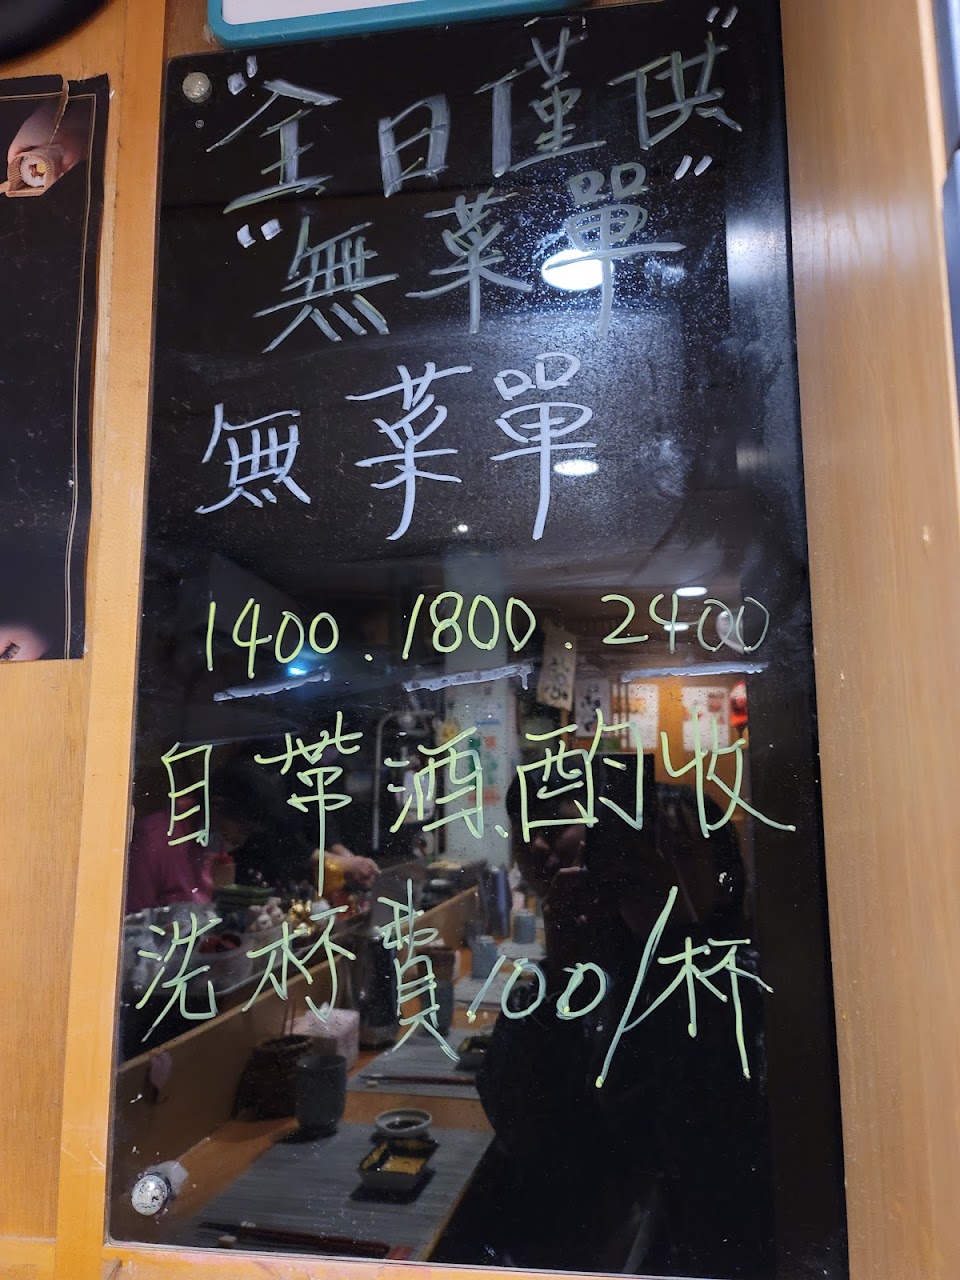 "全日僅供"
"無菜單"
無菜單
1400.1800.2400
自帶酒、酌收
洗杯費100/杯